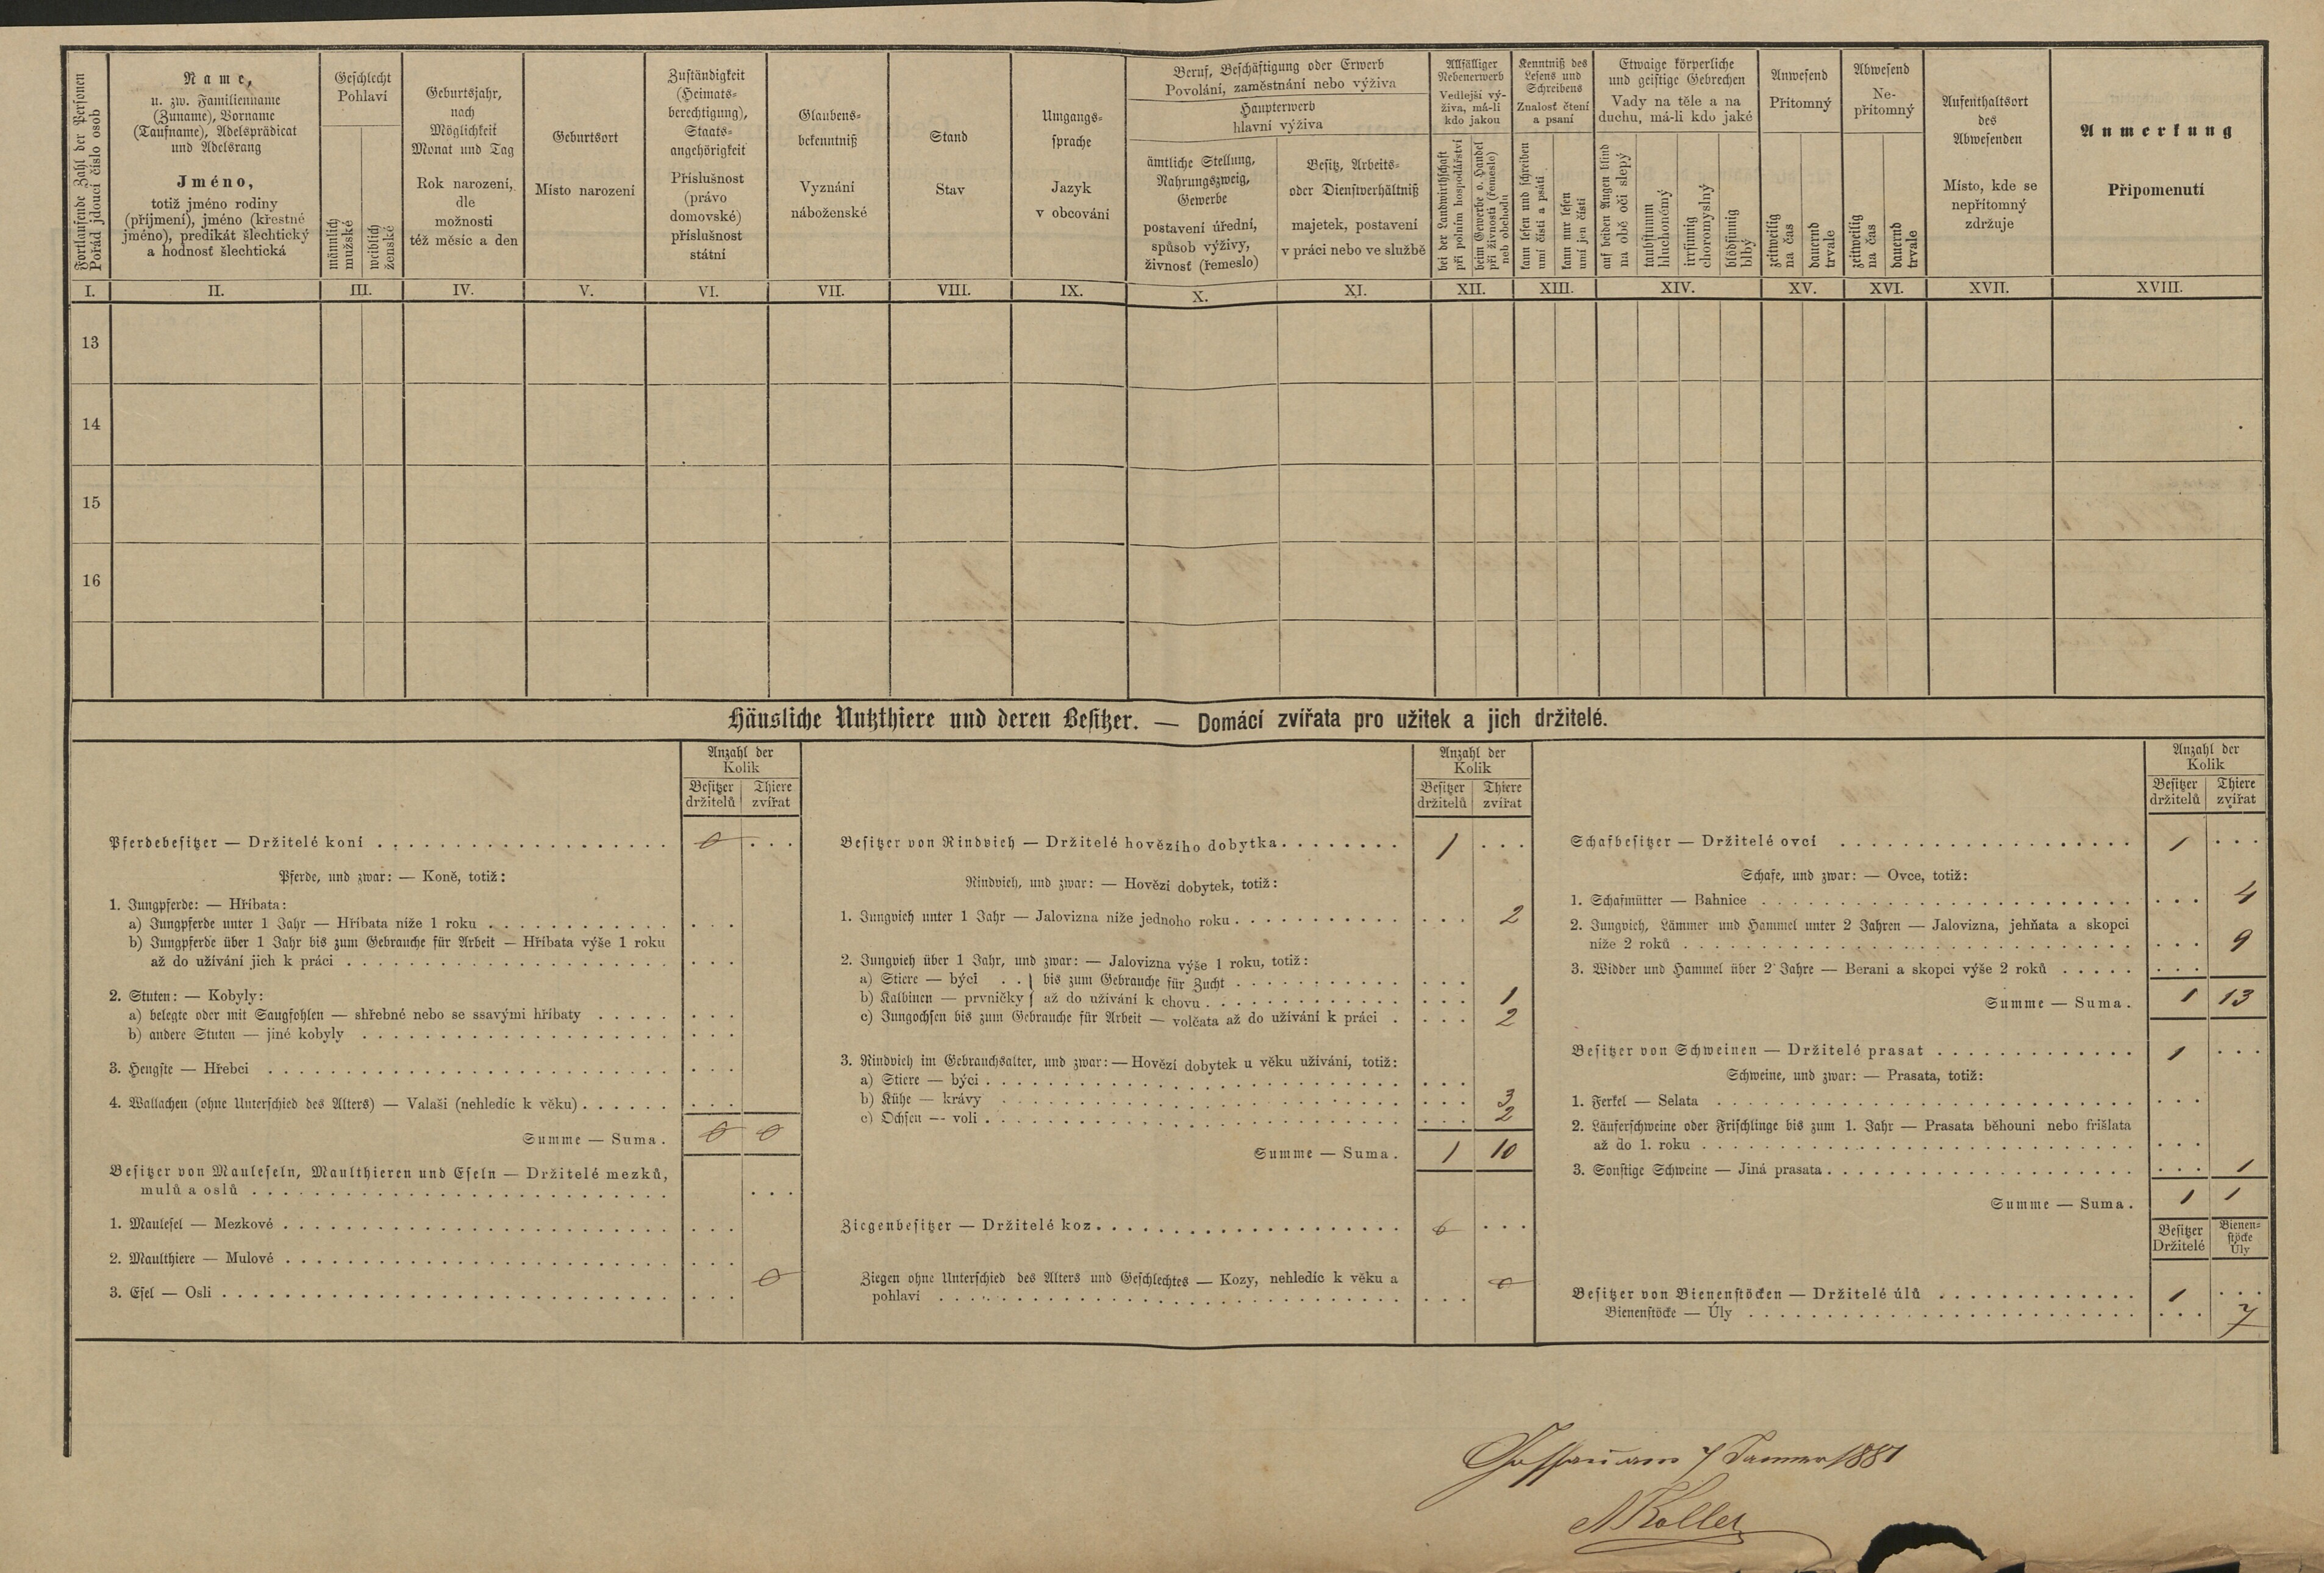 Fortlaufende Zahl der Personen
Pořád jdoucí číslo osob
Name,
u. zw. Familienname
(Zuname), Vorname
(Taufname), Adelsprädicat
und Adelsrang
Jméno,
totiž jméno rodiny
(příjmení), jméno (křestné
jméno), predikát šlechtický
a hodnosť šlechtická
Geschlecht
Pohlaví
männlich
mužské
weiblich
ženské
Geburtsjahr,
nach
Möglichkeit
Monat und Tag
Rok narození,
dle
možnosti
též měsíc a den
Geburtsort
Místo narození
Zuständigkeit
(Heimats-
berechtigung),
Staats-
angehörigkeit
Příslušnost
(právo
domovské)
příslušnost
státní
Glaubens-
bekenntniß
Vyznání
náboženské
Stand
Stav
Umgangs-
sprache
Jazyk
v obcování
Beruf, Beschäftigung oder Erwerb
Povolání, zaměstnání nebo výživa
Haupterwerb
hlavní výživa
ämtliche Stellung,
Nahrungszweig,
Gewerbe
postavení úřední,
spůsob výživy,
živnosť (řemeslo)
Besitz, Arbeits-
oder Dienstverhältniß
majetek, postavení
v práci nebo ve službě
Allfälliger
Nebenerwerb
Vedlejší vý-
živa, má-li
kdo jakou
bei der Landwirthschaft
při polním hospodářství
beim Gewerbe o. Handel
při živnosti (řemesle)
neb obchodu
Kenntniß des
Lesens und
Schreibens
Znalosť čtení
a psaní
kann lesen und schreiben
umí čísti a psáti
kann nur lesen
umí jen čísti
Etwaige körperliche
und geistige Gebrechen
Vady na těle a na
duchu, má-li kdo jaké
auf beiden Augen blind
na obě oči slepý
taubstumm
hluchoněmý
irrsinnig
choromyslný
blödsinnig
blbý
Anwesend
Přítomný
zeitweilig
na čas
dauernd
trvale
Abwesend
Ne-
přítomný
zeitweilig
na čas
dauernd
trvale
Aufenthaltsort
des
Abwesenden
Místo, kde se
nepřítomný
zdržuje
Anmerkung
Připomenutí
I. II. III. IV. V. VI. VII. VIII. IX. X. XI. XII. XIII. XIV. XV. XVI. XVII. XVIII.
13
14
15
16
Häusliche Nutzthiere und deren Besitzer. — Domácí zvířata pro užitek a jich držitelé.
Anzahl der
Kolik
Besitzer Thiere
držitelů zvířat
Pferdebesitzer — Držitelé koní . . . 0 . . .
Pferde, und zwar: — Koně, totiž:
1. Jungpferde: — Hříbata:
a) Jungpferde unter 1 Jahr — Hříbata níže 1 roku . . .
b) Jungpferde über 1 Jahr bis zum Gebrauche für Arbeit — Hříbata výše 1 roku
až do užívání jich k práci . . .
2. Stuten: — Kobyly:
a) belegte oder mit Saugfohlen — shřebné nebo se ssavými hříbaty . . .
b) andere Stuten — jiné kobyly . . .
3. Hengste — Hřebci . . .
4. Wallachen (ohne Unterschied des Alters) — Valaši (nehledíc k věku) . . .
Summe — Suma. 0 0
Besitzer von Mauleseln, Maulthieren und Eseln — Držitelé mezků,
mulů a oslů . . .
1. Maulesel — Mezkové . . .
2. Maulthiere — Mulové . . .
0
3. Esel — Osli . . .
Anzahl der
Kolik
Besitzer Thiere
držitelů zvířat
Besitzer von Rindvieh — Držitelé hovězího dobytka . . . 1 . . .
Rindvieh, und zwar: — Hovězí dobytek, totiž:
1. Jungvieh unter 1 Jahr — Jalovizna níže jednoho roku . . . 2
2. Jungvieh über 1 Jahr, und zwar: — Jalovizna výše 1 roku, totiž:
a) Stiere — býci . . } bis zum Gebrauche für Zucht . . .
b) Kalbinen — prvničky } až do užívání k chovu . . . 1
c) Jungochsen bis zum Gebrauche für Arbeit — volčata až do užívání k práci . . . . 2
3. Rindvieh im Gebrauchsalter, und zwar: — Hovězí dobytek u věku užívání, totiž:
a) Stiere — býci . . .
b) Kühe — krávy . . . 3
c) Ochsen — voli . . . 2
Summe — Suma. 1 10
Ziegenbesitzer — Držitelé koz . . . 0 . . .
Ziegen ohne Unterschied des Alters und Geschlechtes — Kozy, nehledíc k věku a 0
pohlaví . . .
Anzahl der
Kolik
Besitzer Thiere
držitelů zvířat
Schafbesitzer — Držitelé ovcí . . . 1 . . .
Schafe, und zwar: — Ovce, totiž:
1. Schafmütter — Bahnice . . . 4
2. Jungvieh, Lämmer und Hammel unter 2 Jahren — Jalovizna, jehňata a skopci
níže 2 roků . . . 9
3. Widder und Hammel über 2 Jahre — Berani a skopci výše 2 roků . . .
Summe — Suma. 1 13
Besitzer von Schweinen — Držitelé prasat . . . 1 . . .
Schweine, und zwar: — Prasata, totiž:
1. Ferkel — Selata . . .
2. Läuferschweine oder Frischlinge bis zum 1. Jahr — Prasata běhouni nebo frišlata
až do 1. roku . . .
3. Sonstige Schweine — Jiná prasata . . . 1
Summe — Suma. 1 1
Besitzer Bienen-
Držitelé stöcke
Úly
Besitzer von Bienenstöcken — Držitelé úlů . . . 1 . . .
Bienenstöcke — Úly . . . 7
am 7 Jänner 1881
A Koller